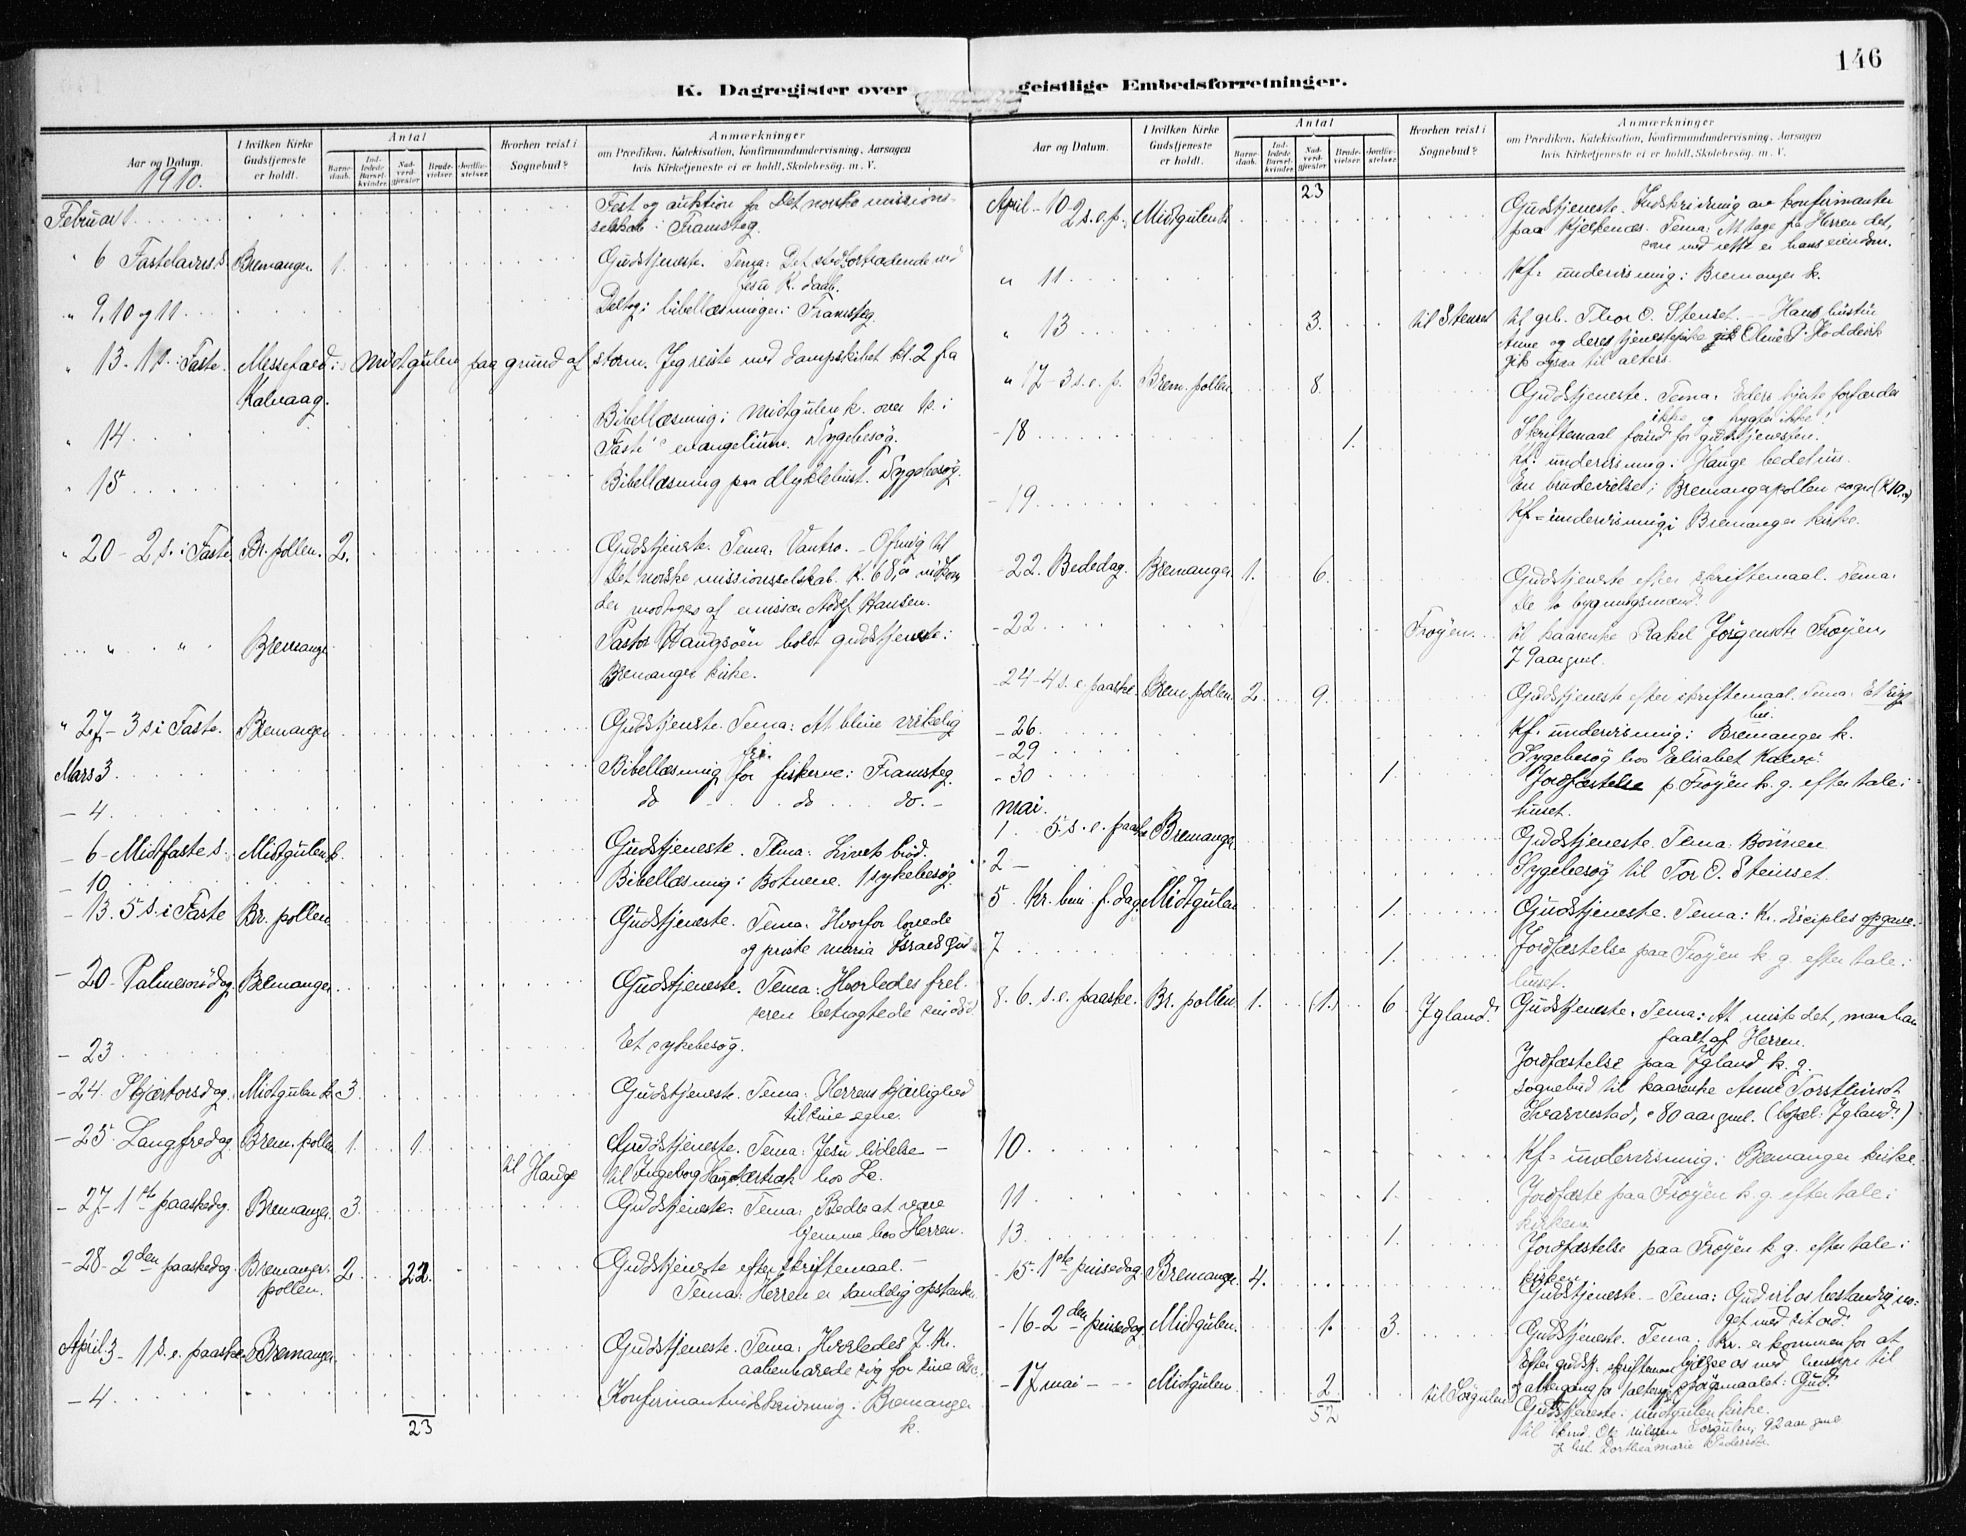 146
K. Dagregister over geistlige Embedsforretninger.
Aar og Datum.
1910.
I hvilken Kirke Gudstjeneste er holdt.
Antal
Barnedaab.
Indledede Barselkvinder.
Nadverdgjester
Brudevielser.
Jordfæstelser.
Hvorhen reist i Sognebud?
Anmærkninger
om Prædiken, Katekisation, Konfirmandundervisning, Aarsagen
hvis Kirketjeneste ei er holdt, Skolebesøg. m. V.
Februar 1. Fest og auktion for Det norske missions-
selskab i Framsteg.
" 6 Fastelavns s. Bremanger 1. Gudstjeneste. Tema: Det stedfortrædende ved
Jesu K. daab.
" 9, 10 og 11 Deltog i bibellæsninger i Framsteg.
" 13. 1 s. i Faste. Messefald i Midtgulen paa grund af storm. Jeg reiste med dampskibet kl. 2 fra
Kalvaag.
" 14 Bibellæsning i Midtgulen k. over 1 s. i
Faste's evangelium. Sygebesøg.
" 15 Bibellæsning paa Myklebust. Sygebesøg.
" 20 - 2 s. i Faste. Br. pollen. 2. Gudstjeneste. Tema: Vantro. - Ofring til
Det norske missionsselskab. K. 68,
der modtoges af emissær Adolf Hansen.
" " " Bremanger Pastor holdt gudstjeneste i
Bremanger kirke.
" 27 - 3 s i Faste. Bremanger Gudstjeneste. Tema: At blive virkelig
fri.
Mars 3 Bibellæsning for fiskerne i Framsteg
- 4 do do do. -
- 6 - Midtfaste s. Midtgulen k. Gudstjeneste. Tema: Livets brød.
- 10 Bibellæsning i Botnene. 1 sykebesøg.
- 13. 5 s. i Faste Br. pollen. Gudstjeneste. Tema: Hvorfor lovede
og priste Maria Israels Gud
- 20 - Palmesøndag Bremanger. Gudstjeneste. Tema: Hvorledes frel-
seren betragtede sin død.
- 23 Et sykebesøg.
- 24. Skjærtorsdag. Midtgulen k. 3. Gudstjeneste. Tema: Herrens kjærlighed
til sine egne.
- 25 Langfredag Brem. pollen 1. 1. Gudstjeneste. Tema: Jesu lidelse -
til Hauge til Ingeborg
- 27 - 1ste paaskedag. Bremanger 3. Gudstjeneste. Tema: Bedre at være
hjemme hos Herren.
- 28 - 2den paaskedag. Bremanger- 2. 22. Gudstjeneste efter skriftemaal. -
pollen. Tema: Herren er sandelig opstanden
April 3 - 1 s. e. paaske Bremanger. Gudstjeneste. Tema: Hvorledes J. Kr.
aabenbarede sig for sine disc.
- 4 Konfirmantindskrivning i Bremanger
k.
23
Aar og Datum.
I hvilken Kirke Gudstjeneste er holdt.
Antal
Barnedaab.
Indledede Barselkvinder.
Nadverdgjester
Brudevielser.
Jordfæstelser.
Hvorhen reist i Sognebud?
Anmærkninger
om Prædiken, Katekisation, Konfirmandundervisning, Aarsagen
hvis Kirketjeneste ei er holdt, Skolebesøg. m. V.
23
April - 10 2 s. e. p. Midtgulen k. Gudstjeneste. Indskrivning av konfirmanter
paa Kjelkenes. Tema: At tage fra Herren det,
som med rette er hans eiendom.
" 11 Kf. undervisning i Bremanger k.
" 13 3. til Stenset til grb. Thor O. Stenset. - Hans hustru
Anne og deres tjenestepike Oline P. Hoddevik
gik ogsaa til alters.
" 17 - 3 s. e. p. Brem. pollen 8. Gudstjeneste. Tema: Eders hjerte forfærdes
ikke og frygter ikke!
Skriftemaal forud for gudstjenesten.
- 18 1. Kf. undervisning i Hauge bedehus.
En brudevielse i Bremangerpollen sogn (K 10.)
- 19 Kf - undervisning i Bremanger kirke.
- 22. Bededag. Bremanger 1. 6. Gudstjeneste efter skriftemaal. Tema:
De to bygningsmænd.
- 22 Frøyen til kaarenke Rakel Jørgensdtr Frøyen,
79 aar gml.
- 24 - 4 s. e. paaske. Brem. pollen. 2. 9. Gudstjeneste efter skriftemaal. Tema: Et rigt
liv.
- 26. Kf. undervisning i Bremanger k.
- 29 Sygebesøg hos Elisabet
- 30 1. Jordfæstelse p. Frøyen k. g. efter tale i
huset.
Mai.
1. 5. s. e. paaske Bremanger Gudstjeneste. Tema: Bønnen
2 - Sygebesøg til Tor O. Stensset.
5 Kr. him. f. dag. Midtgulen 1. Gudstjeneste. Tema: Kr. disciples opgave.
7 1. Jordfæstelse paa Frøyen k. g. efter tale i
huset.
8. 6. s. e. paaske. Br. pollen 1. (1.) 6. Igland. Gudstjeneste. Tema: At miste det, man har
faaet af Herren.
Jordfæstelse paa Igland k. g.
Sognebud til kaarenke Anne Torsteinsdt.
80 aar gml. (bopæl: Igland.)
10 Kf - undervisning i Bremanger kirke.
11 1. Jordfæste paa Frøyen k. g. efter tale i
kirken.
13. 1. Jordfæstelse paa Frøyen k. g. efter tale i
kirken
- 15 - 1ste pinsedag Bremanger. 4. Gudstjeneste. - Tema: Gud vil os
med sit ord.
- 16 - 2den pinsedag. Midtgulen. 1. 3. Gudstjeneste. Tema: Kr. er kommen for at
Efter gudstj. skriftemaal
- 17 mai - Midtgulen 2 til Sørgulen Gudstjeneste i Midtgulen kirke.
52 Sørgulen, 92 aar gml
Dorthea Marie Pedersdtr.